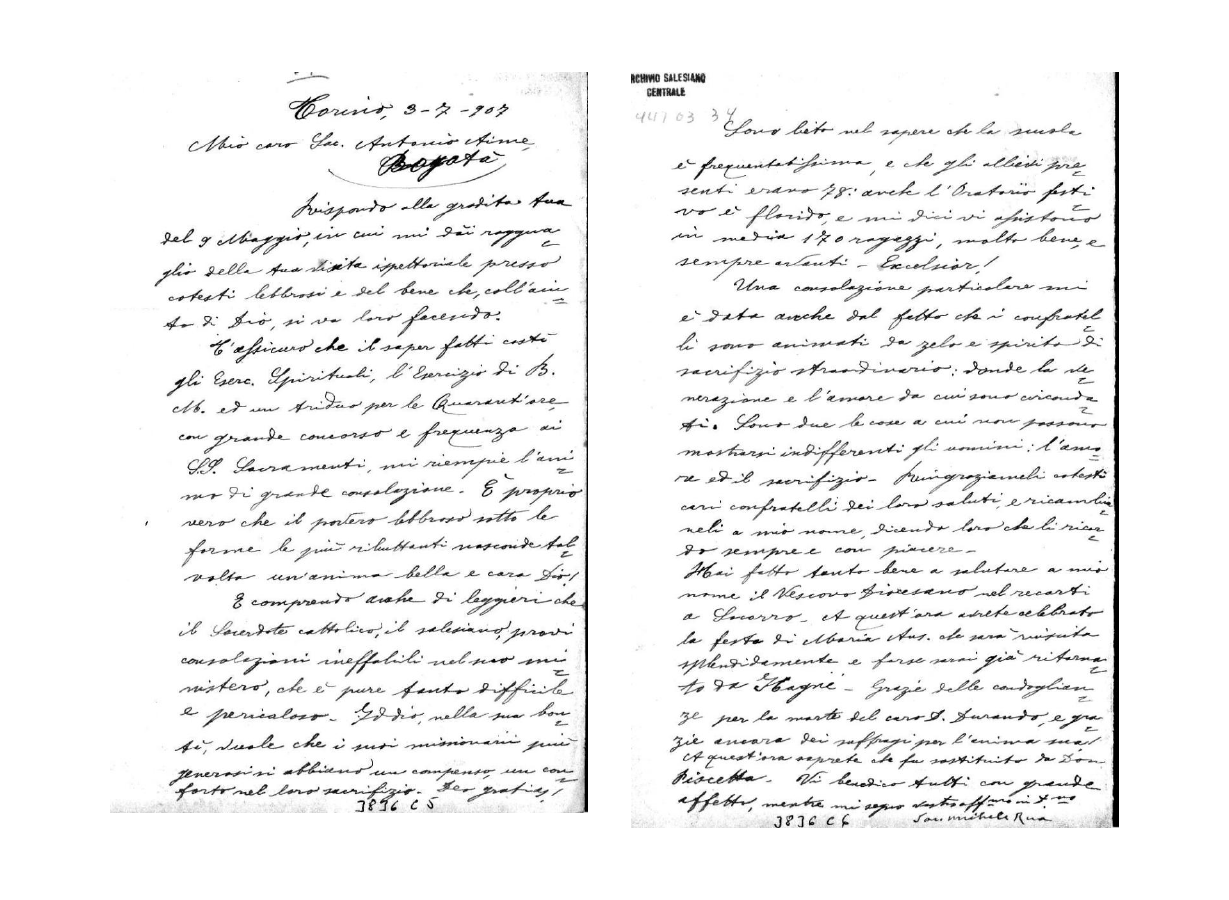 Torino, 3-7-907
Mio caro Sac. Antonio Aime,
Bogotà
Rispondo alla gradita tua
del 9 Maggio, in cui mi dai raggua
glio della tua visita ispettoriale presso
cotesti lebbrosi e del bene che, coll'aiu
to di Dio, si va loro facendo.
T'assicuro che il saper fatti costì
gli Eserc. Spirituali, l'Esercizio di B.
M. ed un triduo per le Quarant'ore,
con grande concorso e frequenza ai
S.S. Sacramenti, mi riempie l'ani
mo di grande consolazione. È proprio
vero che il povero lebbroso sotto le
forme le più ributtanti nasconde tal
volta un'anima bella e cara Dio!
E comprendo anche di leggieri che
il Sacerdote cattolico, il salesiano, provi
consolazioni ineffabili nel suo mi
nistero, che è pure tanto difficile
e pericoloso. Iddio, nella sua bon
tà, vuole che i suoi missionarii più
generosi si abbiano un compenso, un con
forto nel loro sacrifizio. Deo gratias!
3896 C5
RCHIVIO SALESIANO
CENTRALE
447 03 34
Sono lieto nel sapere che la scuola
è frequentatissima, e che gli allievi pre
senti erano 78: anche l'Oratorio festi
vo è florido, e mi dici vi assistono
in media 170 ragazzi, molto bene, e
sempre avanti - Excelsior!
Una consolazione particolare mi
è data anche dal fatto che i confratel
li sono animati da zelo e spirito di
sacrifizio straordinario: donde la ve
nerazione e l'amore da cui sono circonda
ti. Sono due le cose a cui non possono
mostrarsi indifferenti gli uomini: l'amo
re ed il sacrifizio - Ringraziameli cotesti
cari confratelli dei loro saluti, e ricambia
neli a mio nome, dicendo loro che li ricor
do sempre e con piacere -
Hai fatto tanto bene a salutare a mio
nome il Vescovo Diocesano nel recarti
a Socorro. A quest'ora avrete celebrato
la festa di Maria Aus. che sarà riuscita
splendidamente e forse sarai già ritorna
to da - Grazie delle condoglian
ze per la morte del caro D. Durando, e gra
zie ancora dei suffragi per l'anima sua!
A quest'ora saprete che fu sostituito da Don
Piscetta. Vi benedico tutti con grande
affetto, mentre mi segno vostro aff.mo in
Sac. Michele Rua
3896 C6